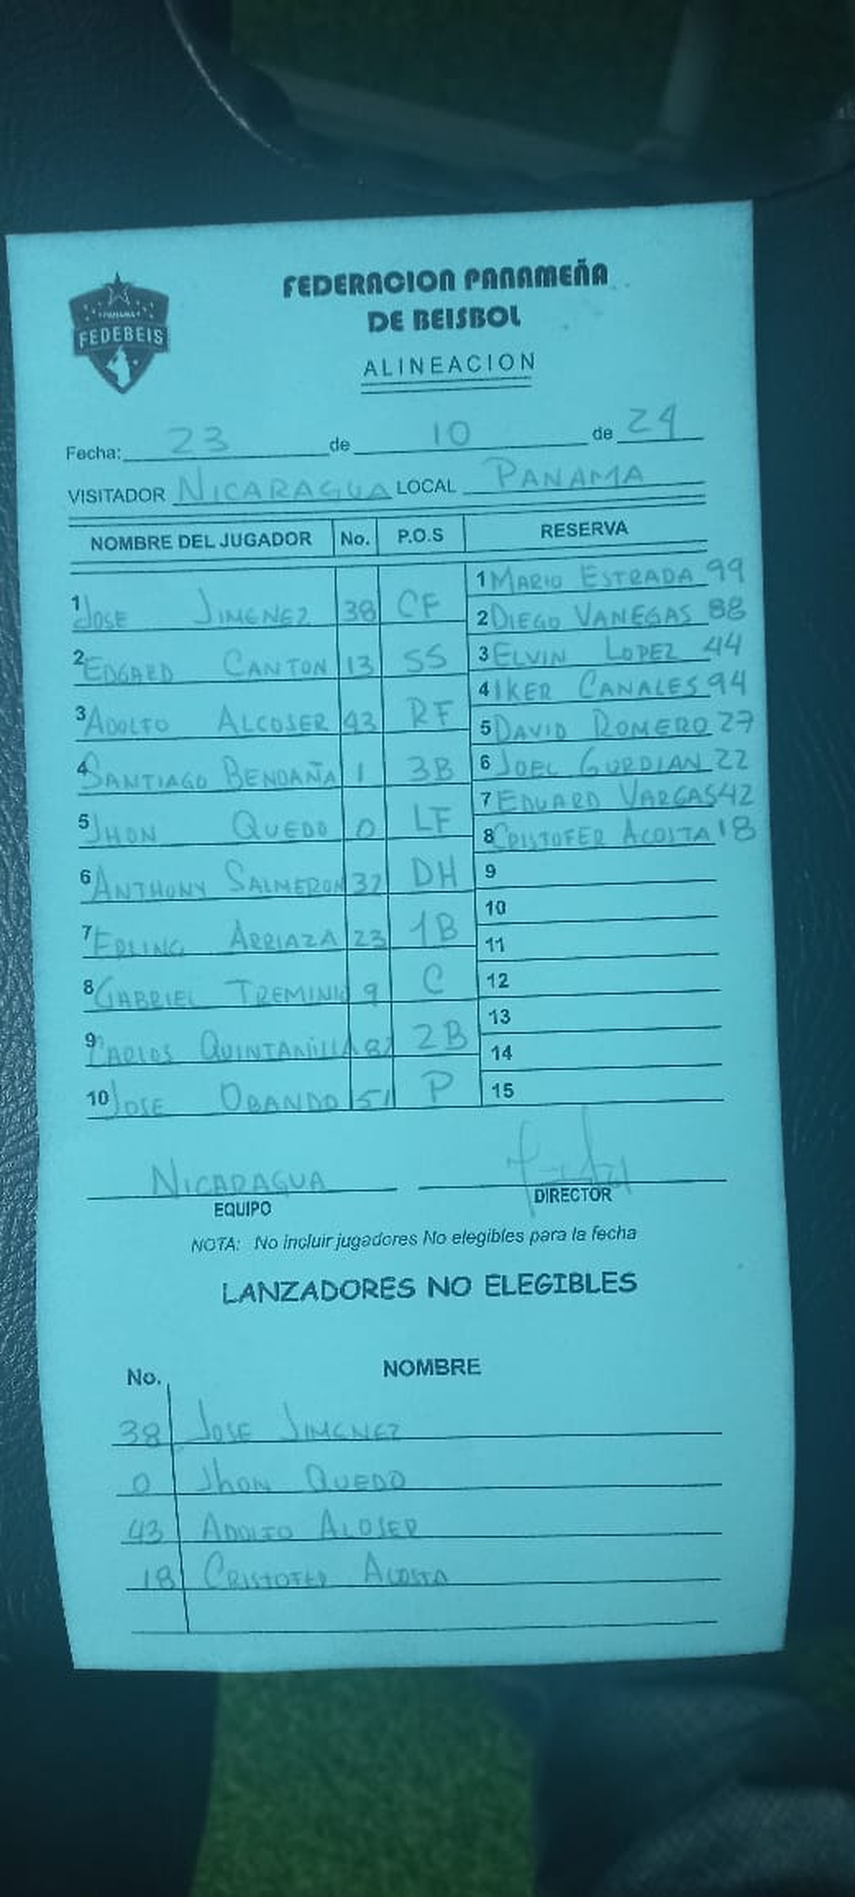 PANAMA
FEDEBEIS
FEDERACION PANAMEÑA
DE BEISBOL
ALINEACION
Fecha: 23 de 10 de 24
VISITADOR NICARAGUA LOCAL PANAMA
NOMBRE DEL JUGADOR No. P.O.S
1 JOSE JIMENEZ 38 CF
2 EDGARD CANTON 13 SS
3 ADOLFO ALCOSER 43 RF
4 SANTIAGO BENDAÑA 1 3B
5 JHON QUEDO 0 LF
6 ANTHONY SALMERON 37 DH
7 ERLING ARRIAZA 23 1B
8 GABRIEL TREMINIO 9 C
9 CARLOS QUINTANILLA 2B
10 JOSE OBANDO 51 P
RESERVA
1 MARIO ESTRADA 99
2 DIEGO VANEGAS 88
3 ELVIN LOPEZ 44
4 IKER CANALES 94
5 DAVID ROMERO 27
6 JOEL GURDIAN 22
7 EDUARD VARGAS 42
8 CRISTOFER ACOSTA 18
9
10
11
12
13
14
15
NICARAGUA
EQUIPO
DIRECTOR
NOTA: No incluir jugadores No elegibles para la fecha
LANZADORES NO ELEGIBLES
No. NOMBRE
38 JOSE JIMENEZ
0 JHON QUEDO
43 ADOLFO ALOSER
18 CRISTOFER ACOSTA